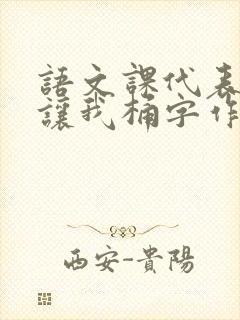 語文課代表
讓我桶字作
西安-貴陽